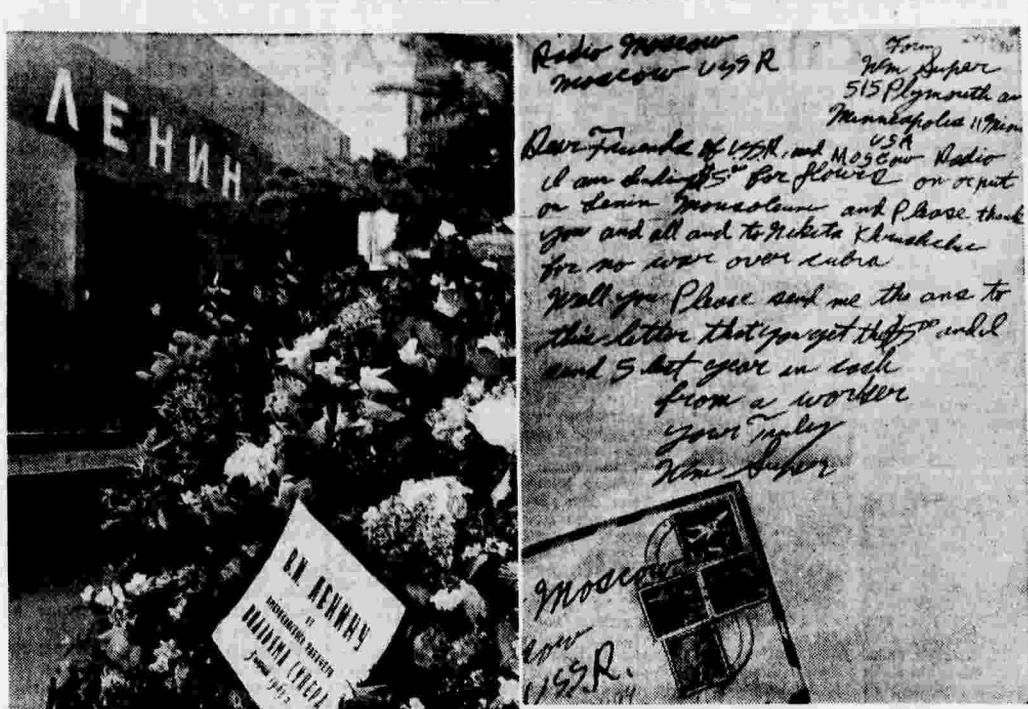 ЛЕНИН
В.И. ЛЕНИНУ
от
американского рабочего
ВИЛЬЯМА СУПЕРА
Radio Moscow
Moscow USSR
From
Wm Super
515 Plymouth av
Minneapolis 11 Minn
USA
Dear Friends of USSR. and Moscow Radio
I am sending $5.00 for flowers on or put
on Lenin and Please thank
you and all and to Nikita
for no war over cubra
Well you Please send me the ans to
this letter that you get the $5.00 and I
send 5 last year in cash
from a worker
your Truley
Wm Super
Moscow
USSR.